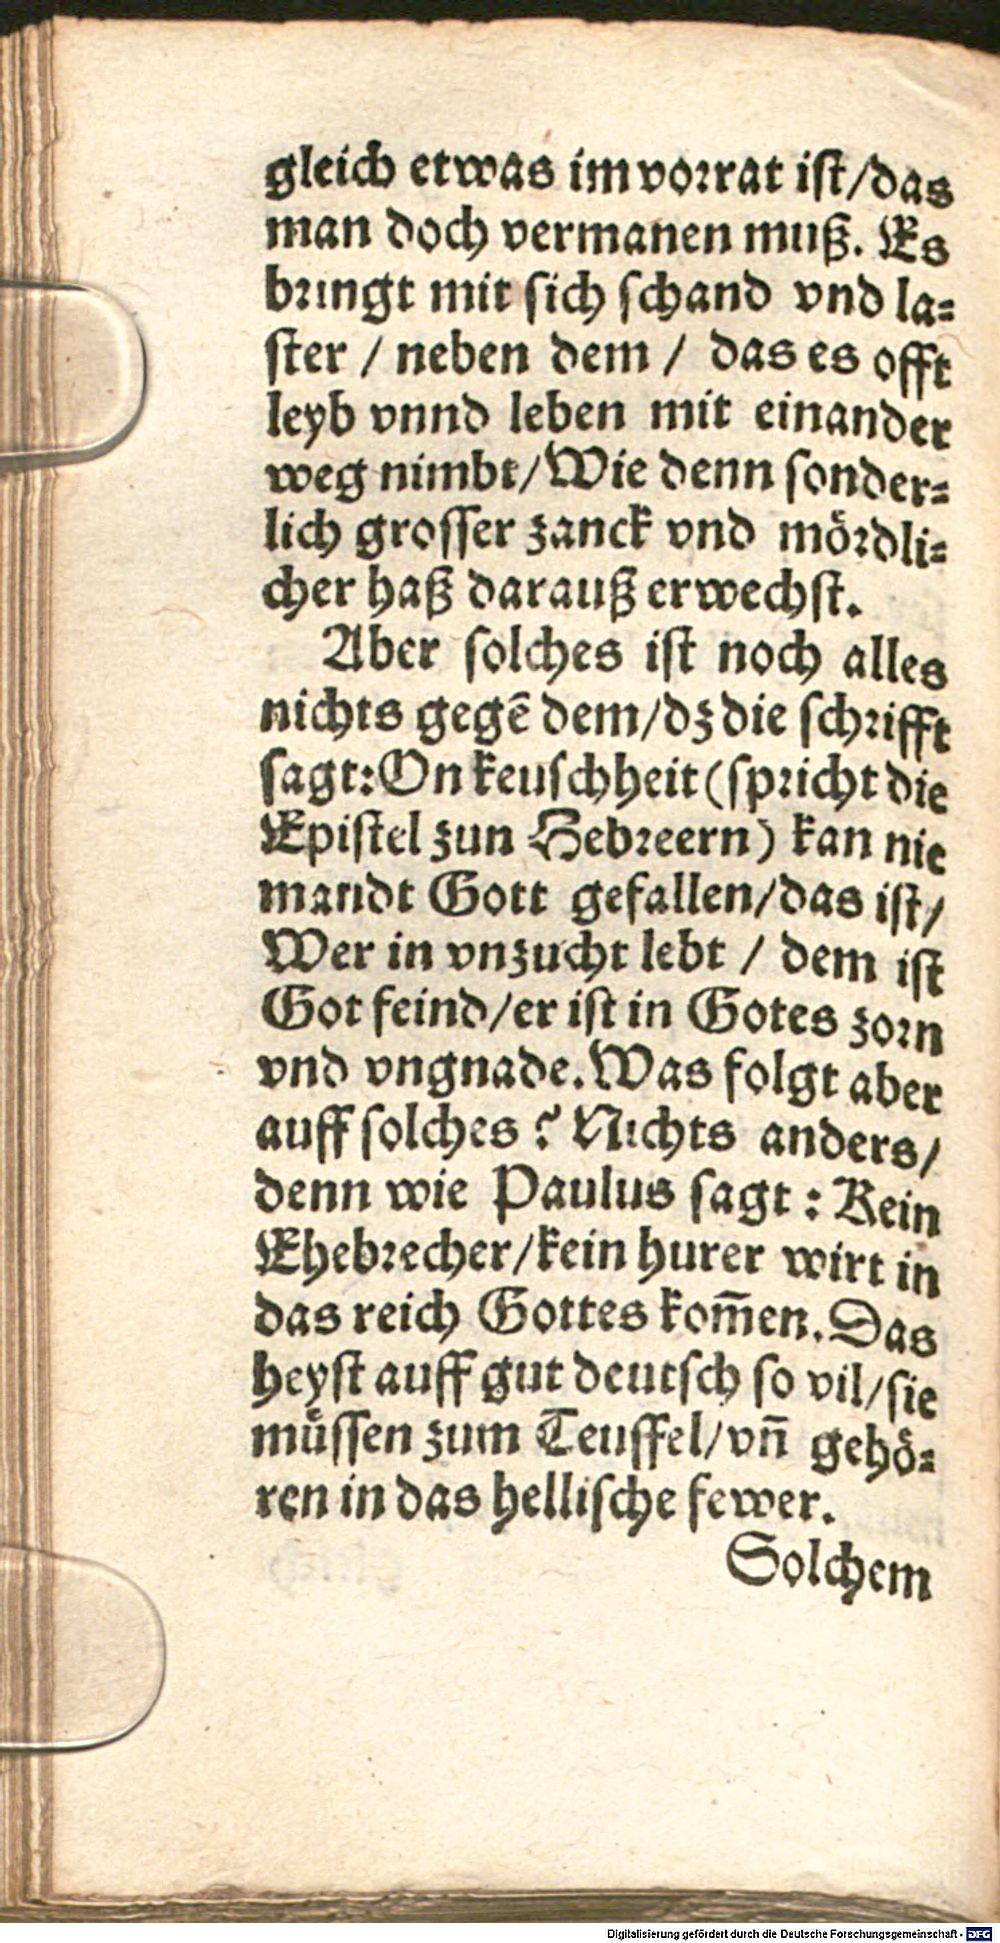 gleich etwas im vorrat ist/das
man doch vermanen muß. Es
bringt mit sich schand vnd la-
ster / neben dem / das es offt
leyb vnnd leben mit einander
weg nimbt/Wie denn sonder-
lich grosser zanck vnd mördli-
cher haß darauß erwechst.
Aber solches ist noch alles
nichts gegē dem/dz die schrifft
sagt:On keuschheit (spricht die
Epistel zun Hebreern) kan nie
mandt Gott gefallen/das ist/
Wer in vnzucht lebt / dem ist
Got feind/er ist in Gotes zorn
vnd vngnade. Was folgt aber
auff solches ? Nichts anders/
denn wie Paulus sagt : Kein
Ehebrecher/kein hurer wirt in
das reich Gottes kom̄en. Das
heyst auff gut deutsch so vil/sie
müssen zum Teuffel/vn̄ gehö-
ren in das hellische fewer.
Solchem
Digitalisierung gefördert durch die Deutsche Forschungsgemeinschaft - DFG